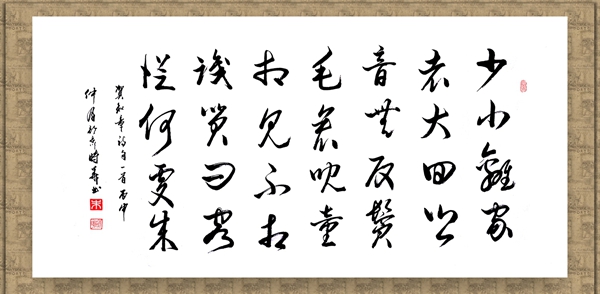 少小離家
老大回鄉
音無改鬢
毛衰兒童
相見不相
識笑問客
從何處來
賀知章詩句一首丙申
仲夏於京時書